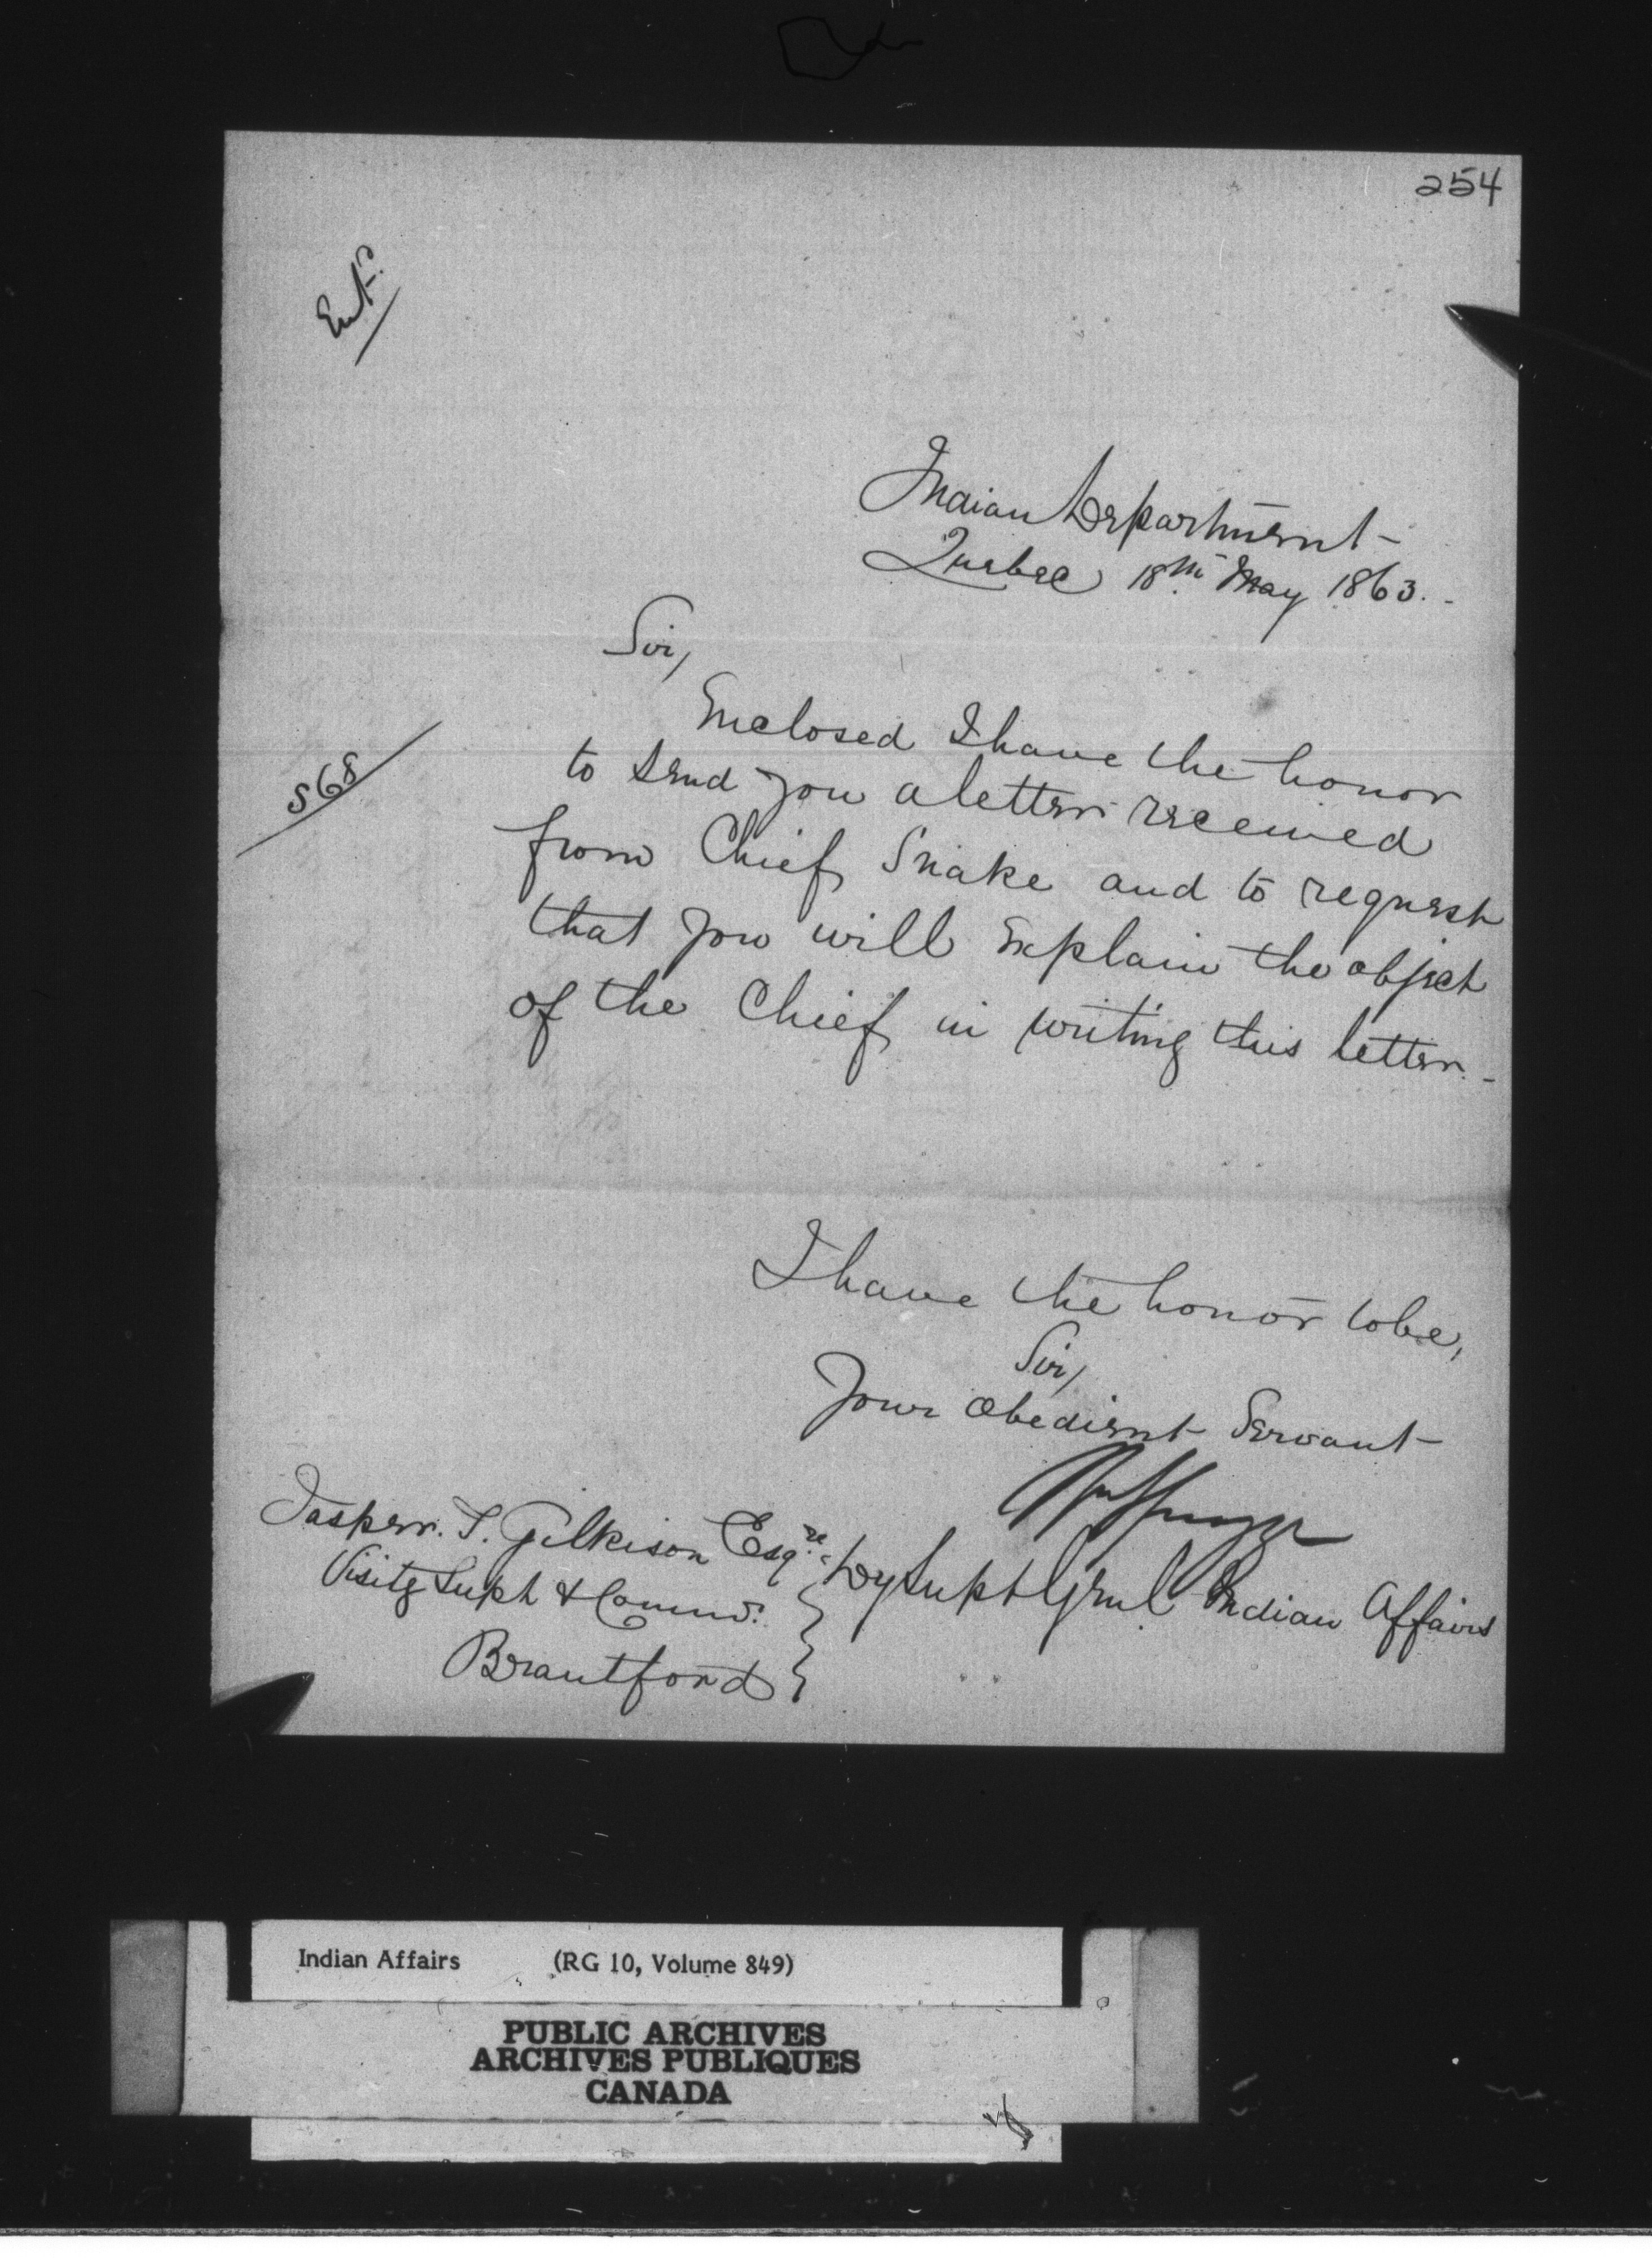 254
Ent^d.
Indian Department -
Quebec 18th May 1863. -
Sir,
568
Enclosed I have the honor
to send you a letter received
from Chief Snake and to request
that you will explain the object
of the Chief in writing this letter. -
I have the honor to be,
Sir,
Your Obedient Servant -
Dy Supt Genl Indian Affairs
Jasper. T. Gilkison Esqre.
Visitg Supt & Commr.
Brantford
Indian Affairs (RG 10, Volume 849)
PUBLIC ARCHIVES
ARCHIVES PUBLIQUES
CANADA